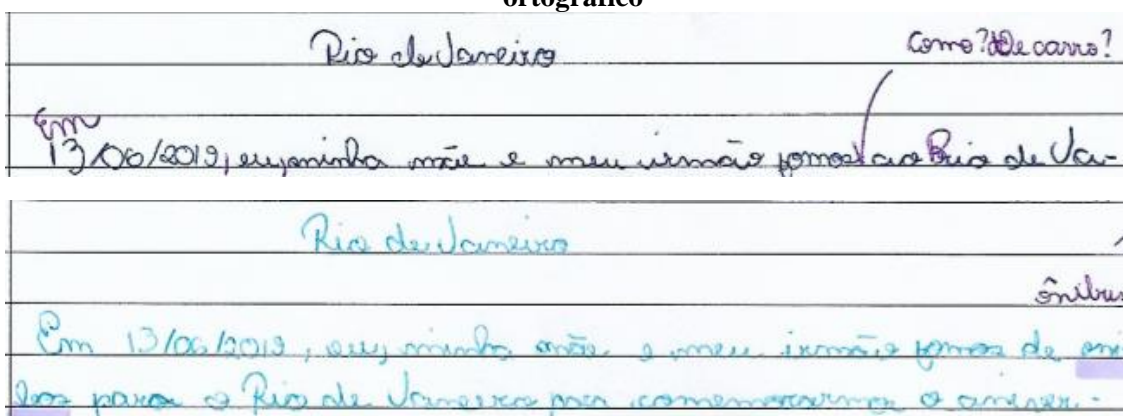 ortográfico
Rio de Janeiro
Como? De carro?
Em
13/06/2019, eu, minha mãe e meu irmão fomos ao Rio de Ja-
Rio de Janeiro
ônibus
Em 13/06/2019, eu, minha mãe e meu irmão fomos de oni
bos para o Rio de Janeiro para comemorarmos o aniver-